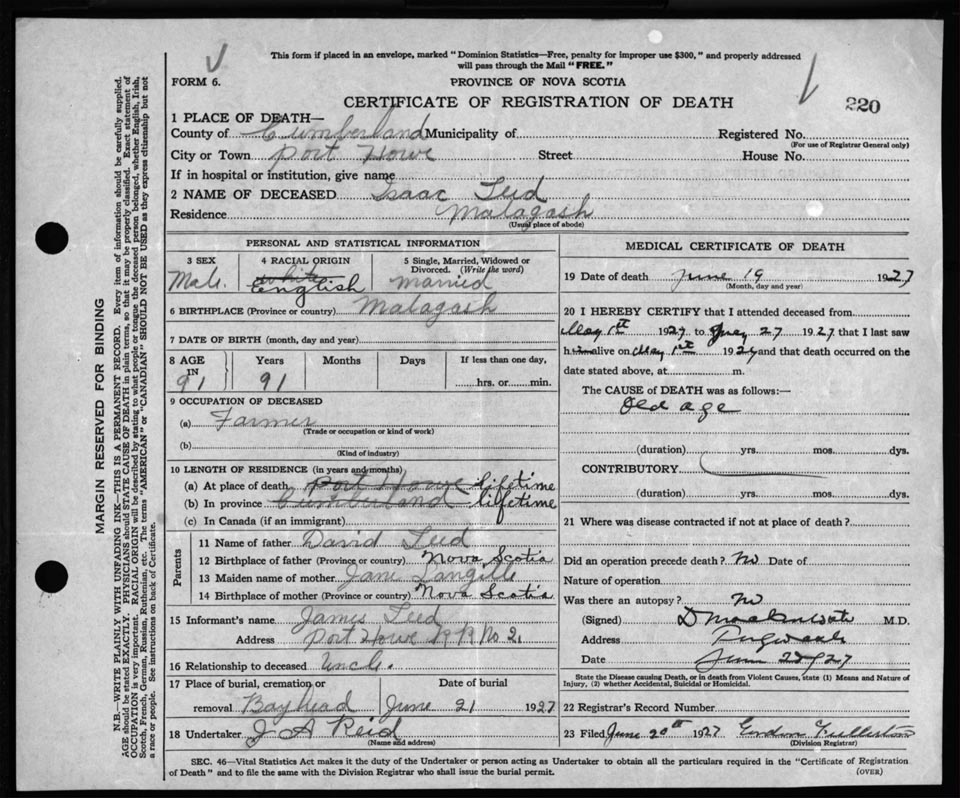 This form if placed in an envelope, marked "Dominion Statistics—Free, penalty for improper use $300," and properly addressed
will pass through the Mail "FREE."
FORM 6.
PROVINCE OF NOVA SCOTIA
CERTIFICATE OF REGISTRATION OF DEATH
220
1 PLACE OF DEATH—
County of Cumberland Municipality of
Registered No.
(For use of Registrar General only)
City or Town Port Howe Street House No.
If in hospital or institution, give name
2 NAME OF DECEASED Isaac Teed
Residence Malagash
(Usual place of abode)
PERSONAL AND STATISTICAL INFORMATION
3 SEX
Male.
4 RACIAL ORIGIN
white
English
5 Single, Married, Widowed or
Divorced. (Write the word)
married
6 BIRTHPLACE (Province or country) Malagash
7 DATE OF BIRTH (month, day and year)
8 AGE
IN
91
Years
91
Months
Days
If less than one day,
hrs. or min.
9 OCCUPATION OF DECEASED
(a) Farmer
(Trade or occupation or kind of work)
(b)
(Kind of industry)
10 LENGTH OF RESIDENCE (in years and months)
(a) At place of death Port Howe lifetime
(b) In province Cumberland lifetime
(c) In Canada (if an immigrant)
Parents
11 Name of father David Teed
12 Birthplace of father (Province or country) Nova Scotia
13 Maiden name of mother Jane Langille
14 Birthplace of mother (Province or country) Nova Scotia
15 Informant's name James Teed
Address Port Howe RR No 2.
16 Relationship to deceased Uncle.
17 Place of burial, cremation or
removal Bayhead
Date of burial
June 21 1927
18 Undertaker J A Reid
(Name and address)
MEDICAL CERTIFICATE OF DEATH
19 Date of death June 19 1927
(Month, day and year)
20 I HEREBY CERTIFY that I attended deceased from
May 1st 1927 to 27 1927 that I last saw
h alive on May 1st 1927 and that death occurred on the
date stated above, at m.
The CAUSE of DEATH was as follows:—
Old age
(duration) yrs. mos. dys.
CONTRIBUTORY
(duration) yrs. mos. dys.
21 Where was disease contracted if not at place of death?
Did an operation precede death? No Date of
Nature of operation
Was there an autopsy? No
(Signed) M.D.
Address Pugwash
Date June 22/27
State the Disease causing Death, or in death from Violent Causes, state (1) Means and Nature of
Injury, (2) whether Accidental, Suicidal or Homicidal.
22 Registrar's Record Number
23 Filed June 20th 1927 Fullerton
(Division Registrar)
SEC. 46—Vital Statistics Act makes it the duty of the Undertaker or person acting as Undertaker to obtain all the particulars required in the "Certificate of Registration
of Death" and to file the same with the Division Registrar who shall issue the burial permit.
(OVER)
MARGIN RESERVED FOR BINDING
N.B.—WRITE PLAINLY WITH UNFADING INK—THIS IS A PERMANENT RECORD. Every item of information should be carefully supplied.
AGE should be stated EXACTLY. PHYSICIANS should STATE CAUSE OF DEATH in plain terms, so that it may be properly classified. Exact statement of
OCCUPATION is very important. RACIAL ORIGIN will be described by stating to what people or tongue the deceased person belonged, whether English, Irish,
Scotch, French, German, Russian, Ruthenian, etc. The terms "AMERICAN" or "CANADIAN" SHOULD NOT BE USED as they express citizenship but not
a race or people. See instructions on back of Certificate.